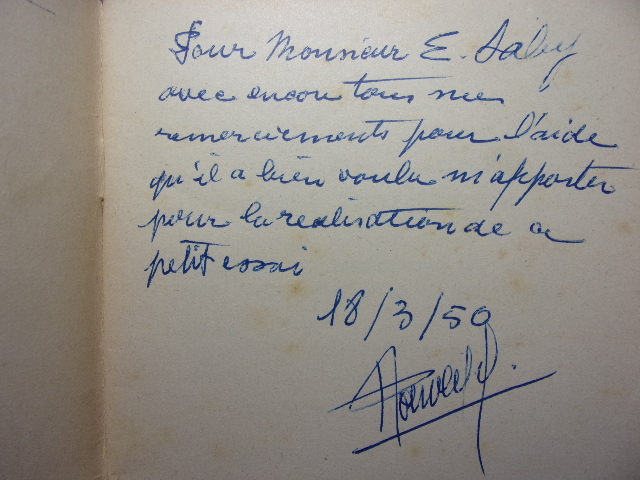 Pour Monsieur E. Saby
avec encore tous mes
remerciements pour l'aide
qu'il a bien voulu m'apporter
pour la realisation de ce
petit essai
18/3/50